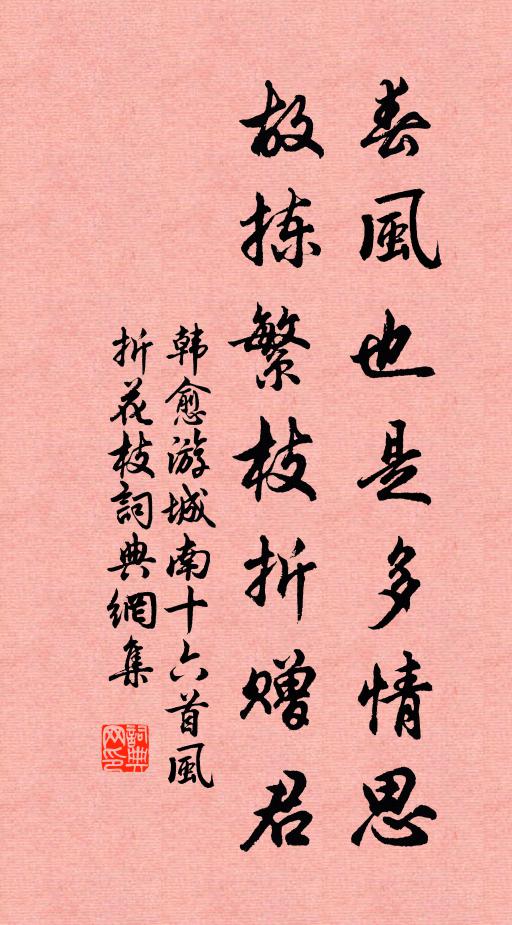 春風也是多情思
故拣繁枝折赠君
韩愈游城南十六首風
折花枝詞典網集
詞典
网印